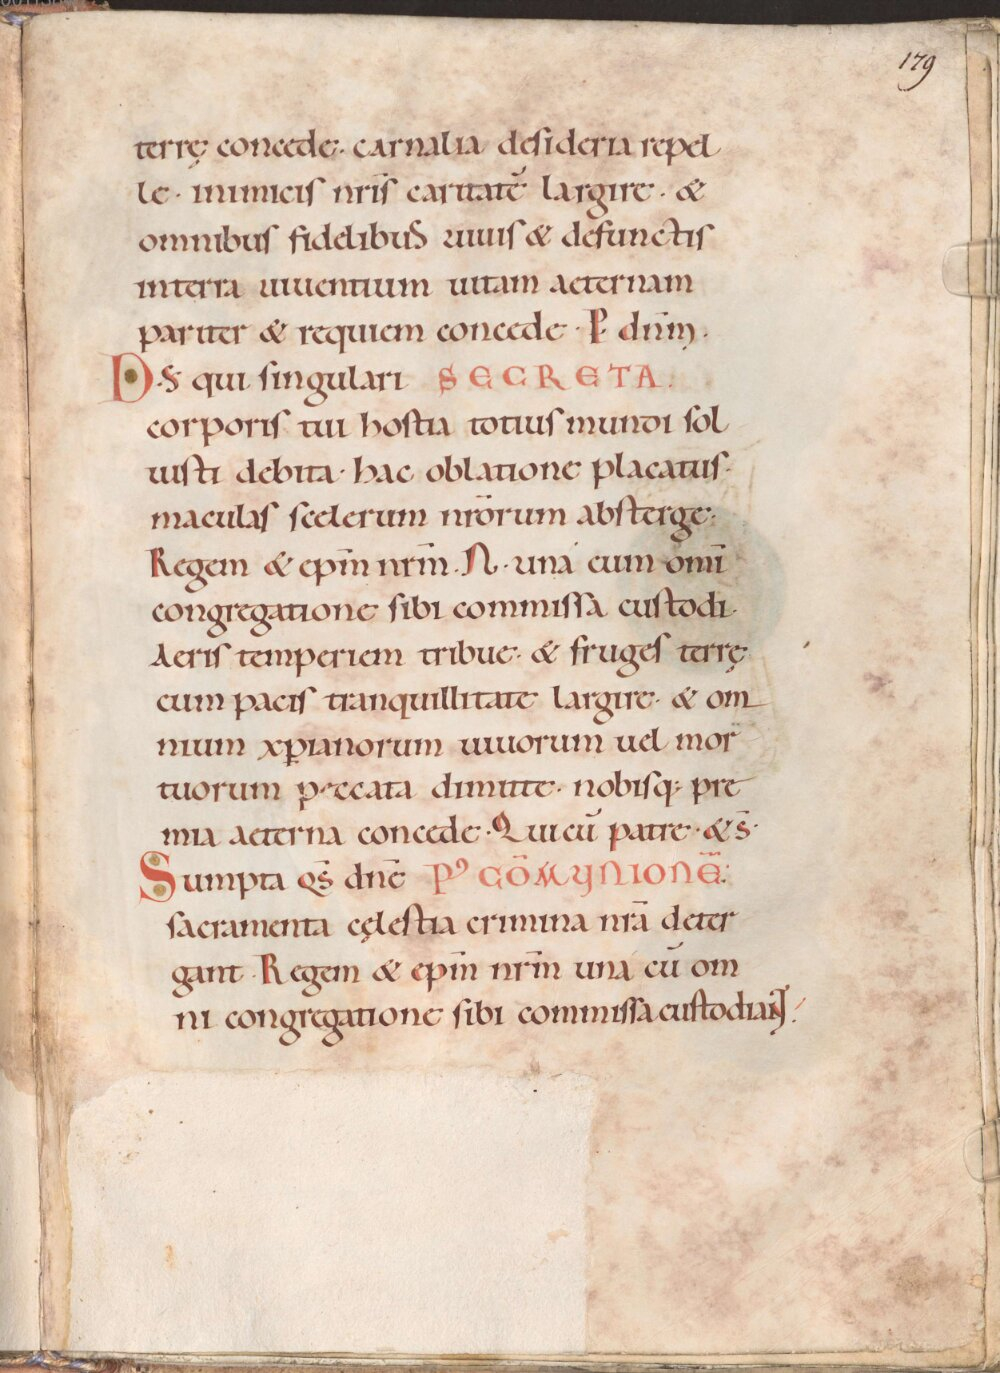 179
terrę concede. carnalia desideria repel
le. inimicis nr̄is caritatē largire. &
omnibus fidelibus uiuis & defunctis
interra uiuentium uitam aeternam
pariter & requiem concede. P dnm̄.
D̄S qui singulari SECRETA.
corporis tui hostia totius mundi sol
uisti debita. hac oblatione placatus.
maculas scelerum nr̄orum absterge.
Regem & ep̄m nr̄m. N. una cum om̄i
congregatione sibi commissa custodi.
Aeris temperiem tribue. & fruges terrę
cum pacis tranquillitate largire. & om
nium xp̄ianorum uiuorum uel mor
tuorum peccata dimitte. nobisq; pre
mia aeterna concede. Qui cū patre. & s̄.
Sumpta qs̄ dn̄e Pꝰ COM̄MVNIONĒ:
sacramenta cęlestia crimina nr̄a deter
gant. Regem & ep̄m nr̄m una cū om
ni congregatione sibi commissa custodiaN̄T.